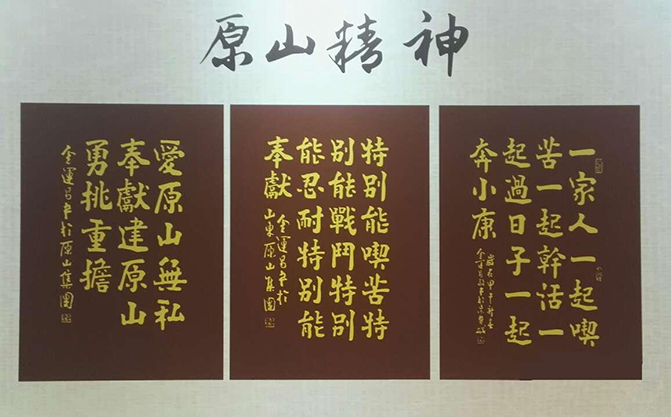 原山精神
一家人一起喫
苦一起幹活一
起過日子一起
奔小康
特別能喫苦特
別能戰鬥特別
能忍耐特別能
奉獻
金運昌書於
山東原山集團
愛原山無私
奉獻建原山
勇挑重擔
金運昌書於原山集團